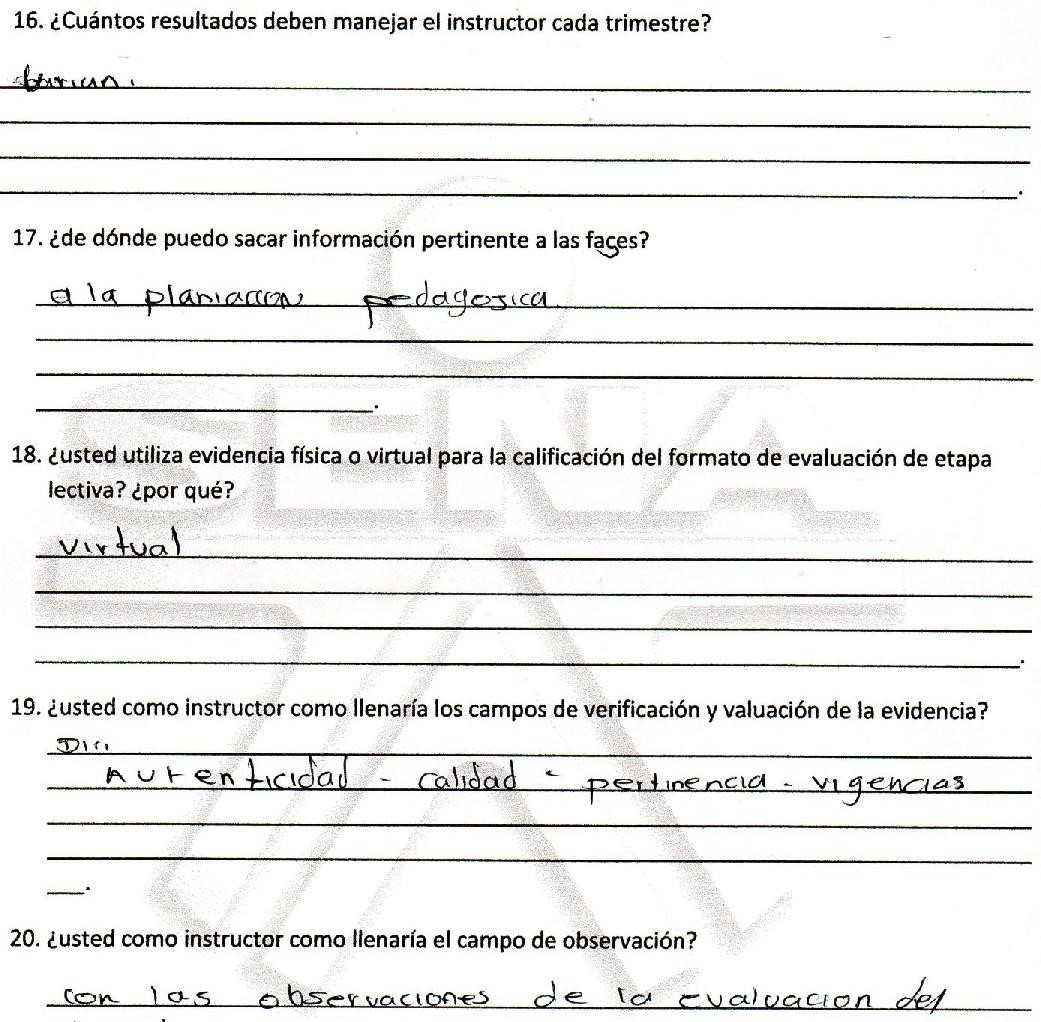 16. ¿Cuántos resultados deben manejar el instructor cada trimestre?
17. ¿de dónde puedo sacar información pertinente a las façes?
a la planiaccon pedagogica
18. ¿usted utiliza evidencia física o virtual para la calificación del formato de evaluación de etapa
lectiva? ¿por qué?
virtual
19. ¿usted como instructor como llenaría los campos de verificación y valuación de la evidencia?
Autenticidad - calidad - pertinencia - vigencias
20. ¿usted como instructor como llenaría el campo de observación?
con las observaciones de la evaluacion del
SENA